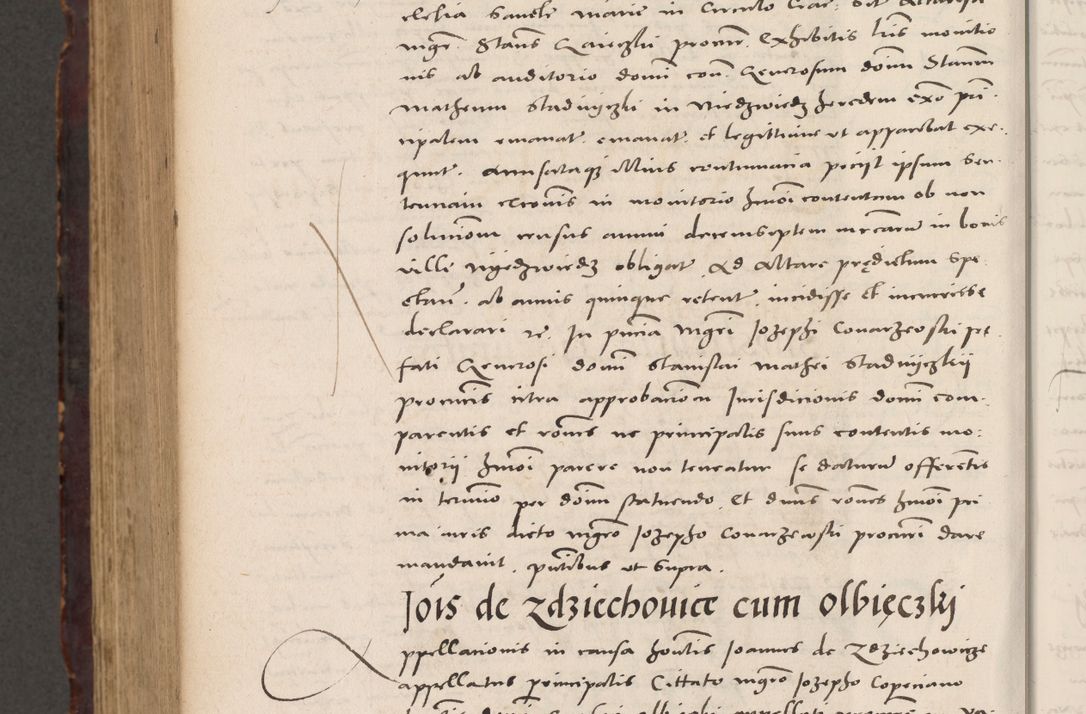 clesia Sancte Marie in Circulo Crac. Sitt Altarista
mgri Stanis Gaieczki procur. Exhibitis lris monitio
nis ab auditorio domi con. Generosum domi Stanm
Matheum Stadnyczki in Niedzwiedz heredem exo pri
ncipalem emanat. emanat. et legittime ut apparebat exe
qunt. Accusataqz illius contumacia peciit ipsum Sen
tenciam excoīs in monitorio hmoi contentam ob non
solucionem census annui decemseptem mrcarum in bonis
villi Nyedzwiedz obligat. Ad Altare prędictum spe
ctan. ab annis quinque retent. incidisse et incurrisse
declarari rē. In pncia Mgri Iozephi Conarzeoski pre
fati Generosi domi Stanislai Mathei Stadnyczkij
procuris citra approbacionem Iurisdicionis domi com
parentis et rones ne principalis suus contentis mo
nitorij hmoi parere non teneatur se daturum offerentis
in termio per domi statuendo. Et dnus rones hmoi pri
ma iuris dicto Mgro Iozepho Conarzewski procuri dare
mandavit, pntibus ut supra.
Iois de Zdziechouice cum Olbięczkj
ppellacionis in causa hontis Ioannes de Zdziechowicze
appellatus principalis Cittato Mgro Iozepho Copeciano